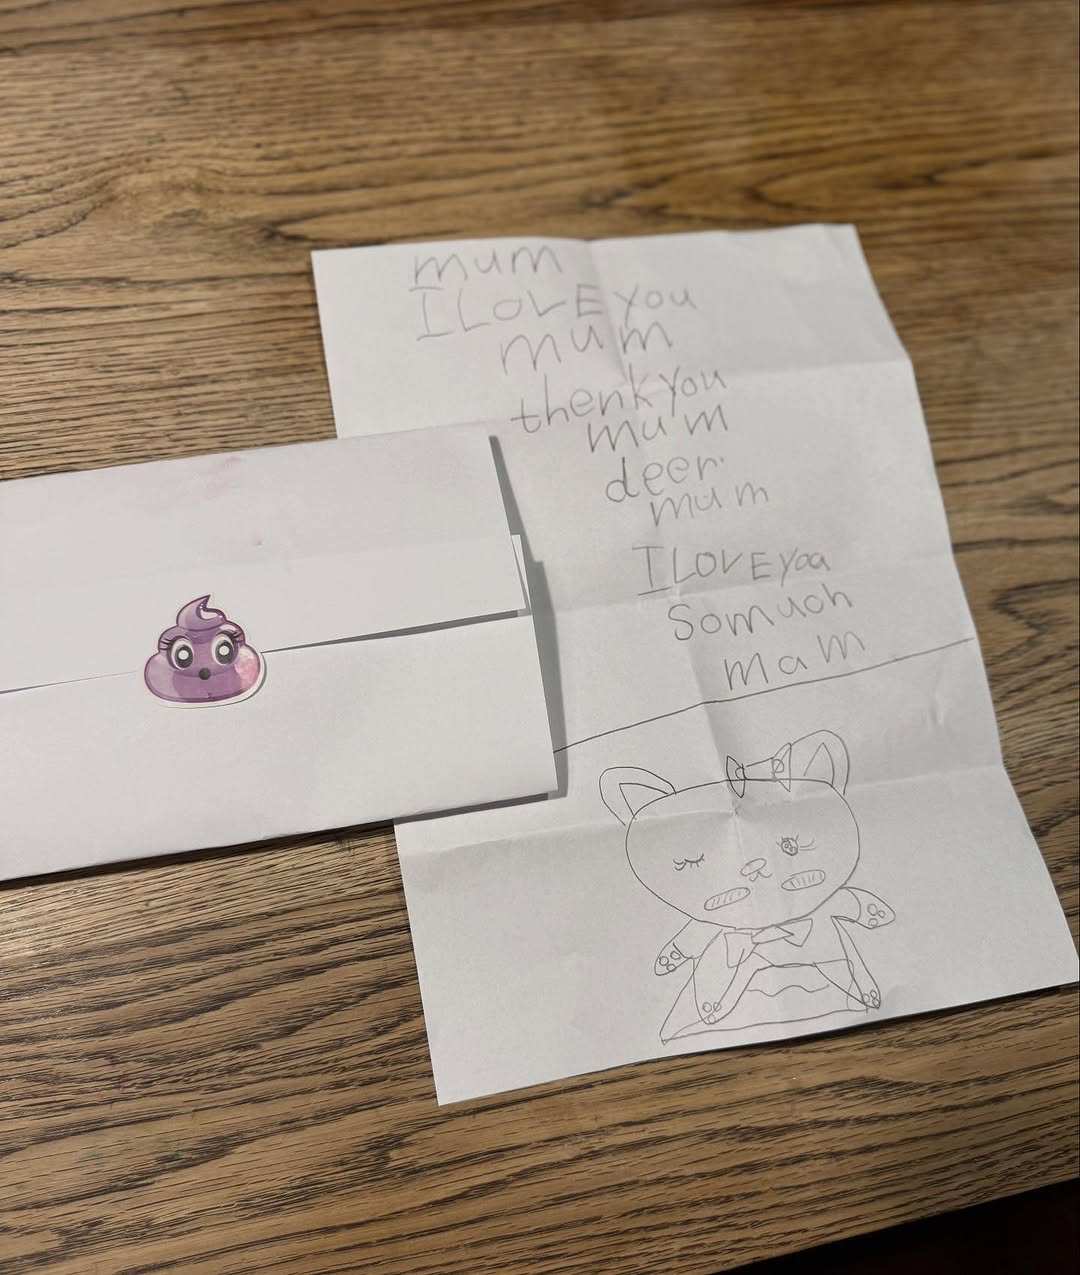 mum
I LOVE you
mum
thenk you
mum
deer
mum
I LOVE yoa
So much
mam